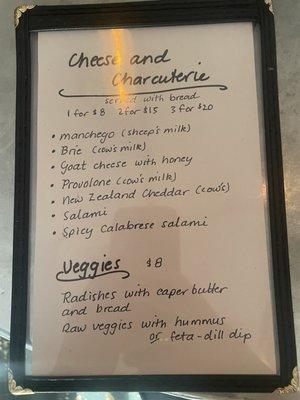 Cheese and
Charcuterie
served with bread
1 for $8 2 for $15 3 for $20
• manchego (sheep's milk)
• Brie (cow's milk)
• Goat cheese with honey
• Provolone (cow's milk)
• New Zealand Cheddar (cow's)
• Salami
• Spicy Calabrese salami
Veggies $8
Radishes with caper butter
and bread
Raw veggies with hummus
or feta-dill dip